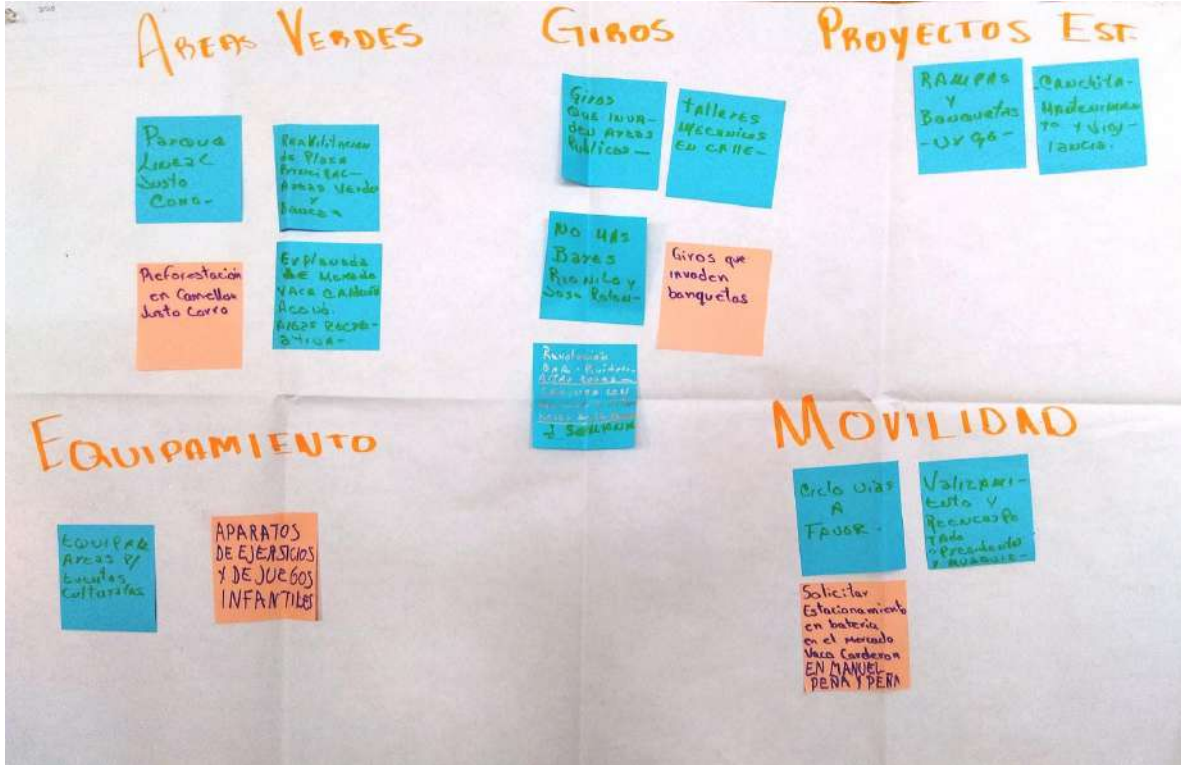 AREAS VERDES
Parque
Lineal
Justo
Corro-
Rehabilitacion
de Plaza
Principal-
Areas Verdes
y
Bancas
Reforestación
en Camellon
Justo Corro
Explanada
de Mercado
VACA CALderón
Areas Recre-
ativa-
GIROS
Giros
QUE INVA-
den Areas
Publicas-
talleres
MECANICOS
EN CALLE-
NO MAS
Bares
Rio Nilo y
Giros que
invaden
banquetas
Revolucion
BAR - Ruidos
PROYECTOS EST.
RAMPAS
Y
Banquetas
-URGE-
-Canchita-
Mantenimien
to y Vigi
lancia.
EQUIPAMIENTO
EQUIPAR
Areas P/
Eventos
Culturales
APARATOS
DE EJERSICIOS
Y DE JUEGOS
INFANTILES
MOVILIDAD
Ciclo vias
A
FAVOR.
Valizami-
ento y
Reencarpe
tado
Presidentes
Solicitar
Estacionamiento
en bateria
en el Mercado
Vaca Carderon
EN MANUEL
PEÑA Y PEÑA